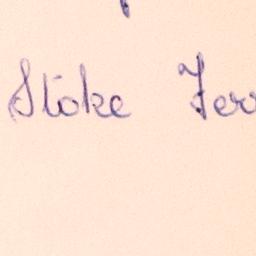 Stoke Fer